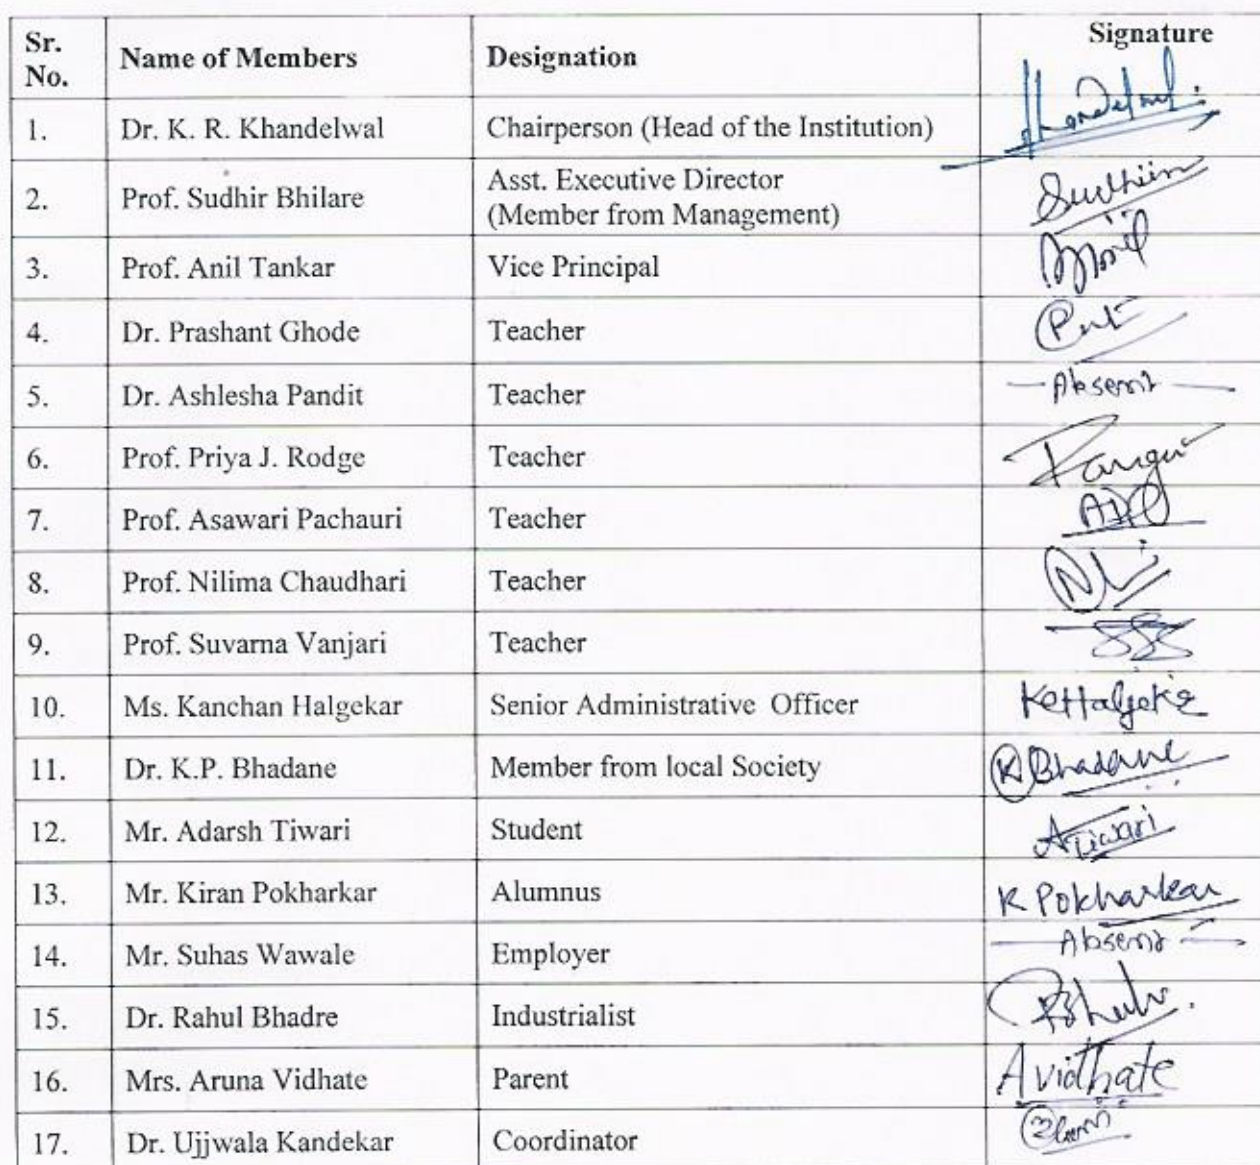 Sr. No. Name of Members Designation Signature
1. Dr. K. R. Khandelwal Chairperson (Head of the Institution) Khandelwal
2. Prof. Sudhir Bhilare Asst. Executive Director
(Member from Management) Sudhir
3. Prof. Anil Tankar Vice Principal
4. Dr. Prashant Ghode Teacher
5. Dr. Ashlesha Pandit Teacher — Absent —
6. Prof. Priya J. Rodge Teacher
7. Prof. Asawari Pachauri Teacher
8. Prof. Nilima Chaudhari Teacher
9. Prof. Suvarna Vanjari Teacher
10. Ms. Kanchan Halgekar Senior Administrative Officer
11. Dr. K.P. Bhadane Member from local Society K Bhadane
12. Mr. Adarsh Tiwari Student ATiwari
13. Mr. Kiran Pokharkar Alumnus K Pokharkar
14. Mr. Suhas Wawale Employer — Absent —
15. Dr. Rahul Bhadre Industrialist
16. Mrs. Aruna Vidhate Parent Avidhate
17. Dr. Ujjwala Kandekar Coordinator